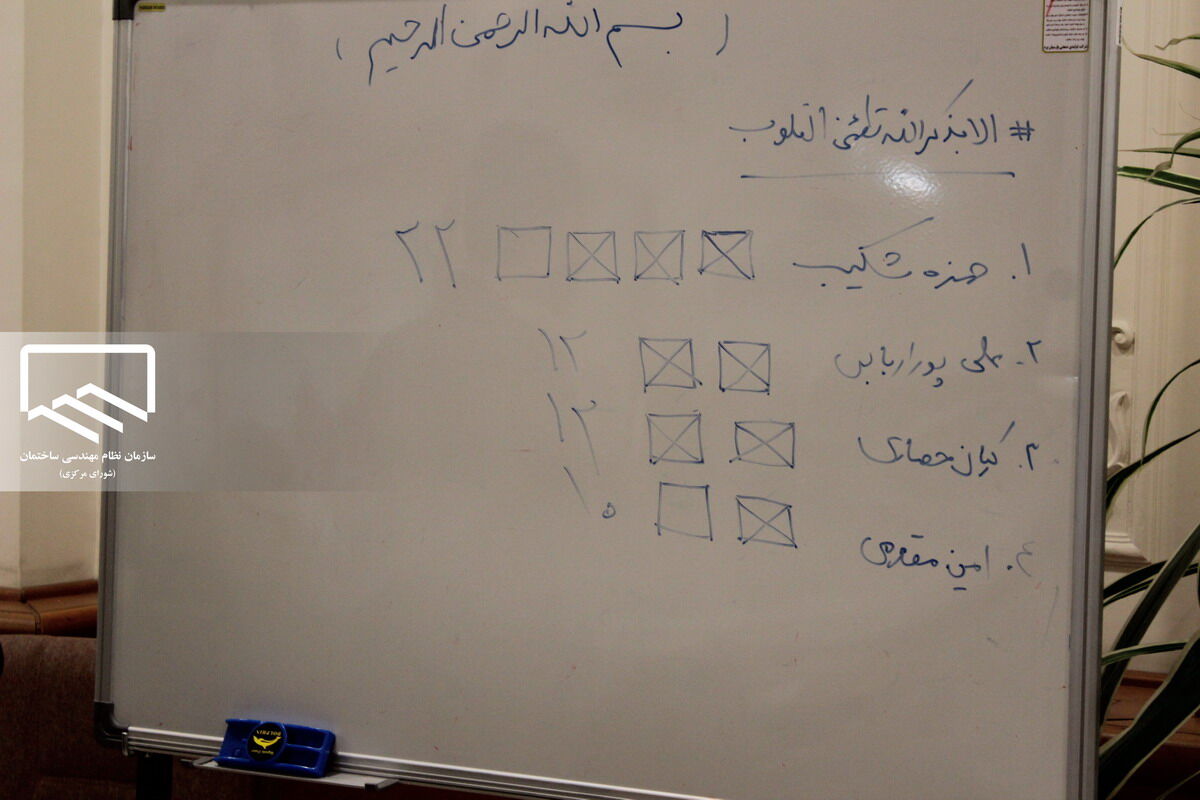 ( بسم الله الرحمن الرحیم )
# الا بذکر الله تطمئن القلوب
۱. حمزه شکیب ۲۲
۲- علی پور اربابی ۱۲
۳. کیان حصاری ۱۲
۴. امین مقدمی ۱۵
سازمان نظام مهندسی ساختمان
(شورای مرکزی)